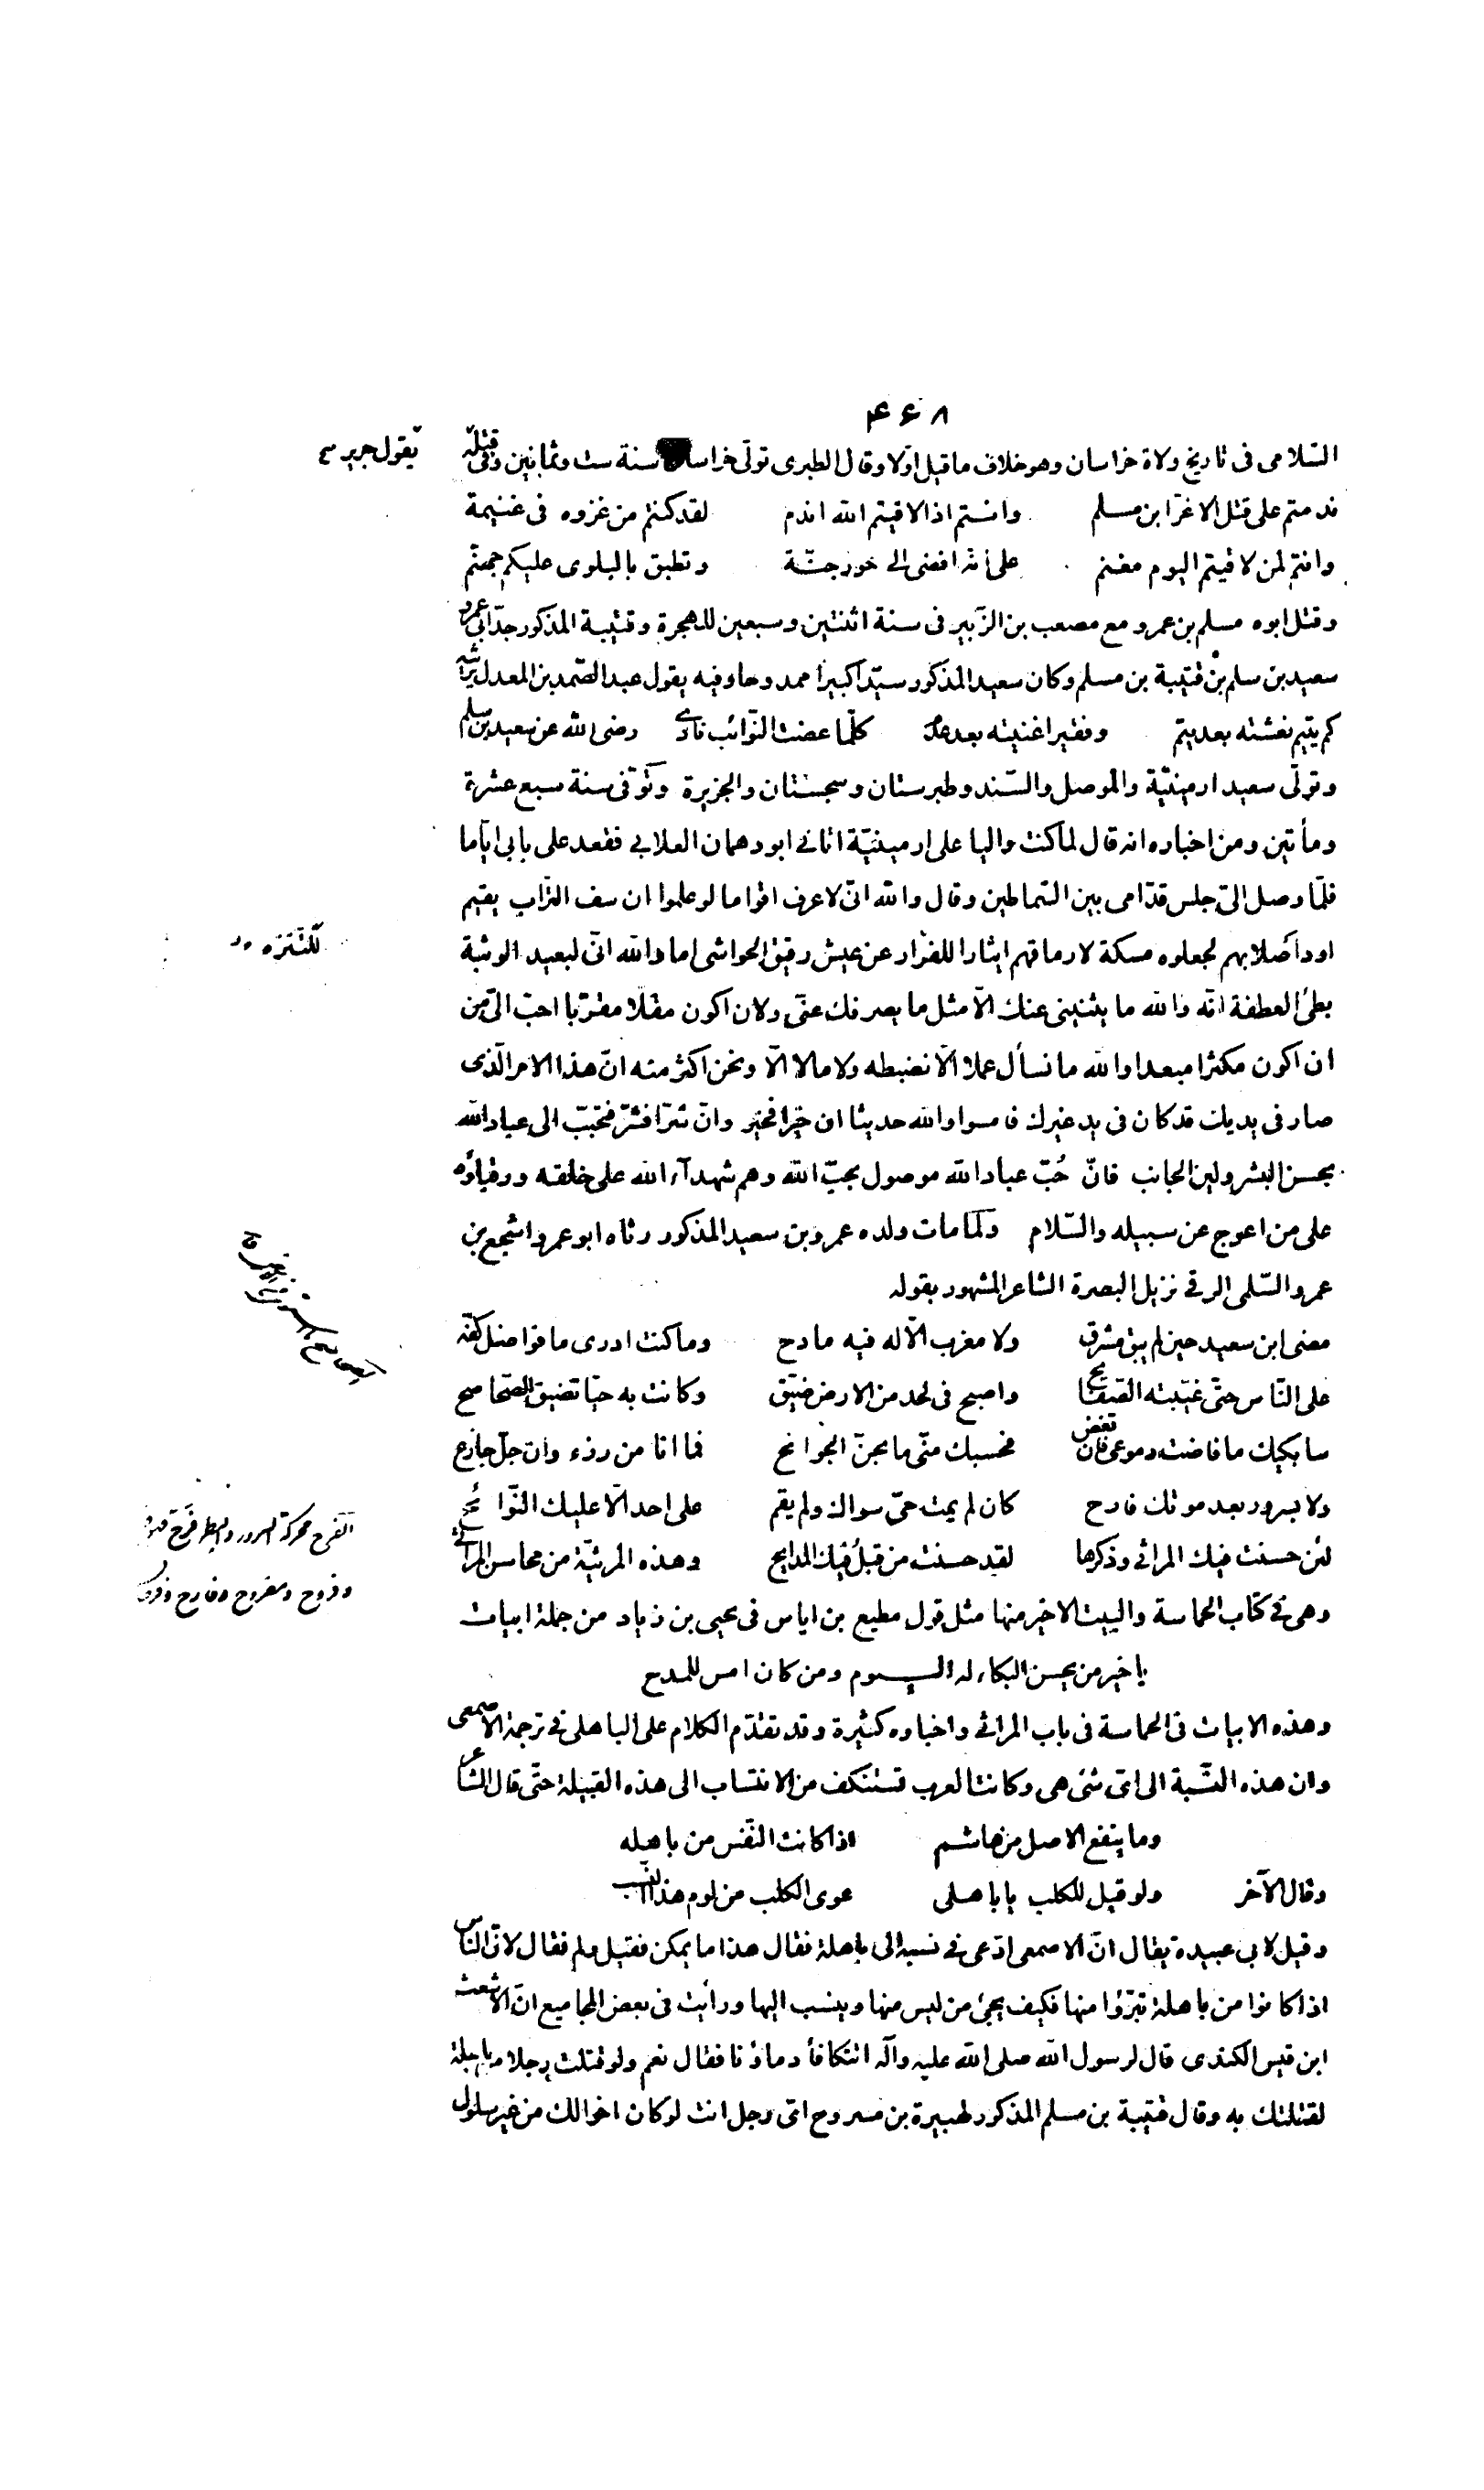 ۴۶۸
السّلامى فى تاريخ ولاة خراسان وهو خلاف ما قيل اوّلا وقال الطبرى تولّى خراسان سنة ست وثمانين وفى قتله
يقول جرير
ندمتم على قتل الاغرّ ابن مسلم وانتم اذا لاقيتم الله اندم لقد كنتم من غزوه فى غنيمة
وانتم لمن لاقيتم اليوم مغنم على انّه افضى الى حور جنّة وتطبق بالبلوى عليكم جهنّم
وقتل ابوه مسلم بن عمرو مع مصعب بن الزّبير فى سنة اثنتين وسبعين للهجرة وقتيبة المذكور جدّ ابى عمرو
سعيد بن سلم بن قتيبة بن مسلم وكان سعيد المذكور سيّدا كبيرا ممدوحا وفيه يقول عبد الصّمد بن المعدل يرثيه
كم يتيم نعشته بعد يتم وفقير اغنيته بعد عدم كلّما عضت النّوائب نادى رضى الله عن سعيد بن سلم
وتولّى سعيد ارمينيّة والموصل والسّند وطبرستان وسجستان والجزيرة وتوفى سنة سبع عشرة
ومأتين ومن اخباره انه قال لما كنت واليا على ارمينيّة اتانى ابو دهمان العلابى فقعد على بابى ايّاما
فلمّا وصل الىّ جلس قدّامى بين السّماطين وقال والله انّى لاعرف اقواما لو علموا ان سف التراب يقيم
اود اصلابهم لجعلوه مسكة لارماقهم ايثارا للفرار عن عيش رقيق الحواشى اما والله انّى لبعيد الوثبة
للتنزه
بطئ العطفة انّه والله ما يثنينى عنك الّا مثل ما يصرفك عنّى ولان اكون مقلّا مقرّبا احبّ الىّ من
ان اكون مكثرا مبعدا والله ما نسأل عملا الّا نضبطه ولا مالا الّا ونحن اكثر منه انّ هذا الامر الّذى
صار فى يديك قد كان فى يد غيرك فامسوا والله حديثا ان خيرا فخير وانّ شرّا فشرّ فتحبّب الى عباد الله
بحسن البشر ولين الجانب فانّ حُبّ عباد الله موصول بحبّ الله وهم شهدآء الله على خلقه ورقباؤه
على من اعوج عن سبيله والسّلام ولمّا مات ولده عمرو بن سعيد المذكور رثاه ابو عمرو اشجع بن
عمرو السّلمى الرقى نزيل البصرة الشاعر المشهور بقوله
مضى ابن سعيد حين لم يبق مشرق ولا مغرب الّا له فيه مادح وما كنت ادرى ما فواضل كفّه
على النّاس حتّى غيّبته الصّفائح واصبح فى لحد من الارض ضيّق وكانت به حيّا تضيق الصّحاصح
سابكيك ما فاضت دموعى فان تغض فحسبك منّى ما تجنّ الجوانح فما انا من رزء وان جلّ جازع
ولا بسرور بعد موتك فارح كان لم يمت حىّ سواك ولم يقم على احد الّا عليك النّوائح
الفرح محركة السرور والبطر فرح
وفروح ومفروح وفارح
لئن حسنت فيك المراثى وذكرها لقد حسنت من قبل فيك المدايح وهذه المرثيّة من محاسن المراثى
وهى فى كتاب الحماسة والبيت الاخير منها مثل قول مطيع بن اياس فى يحيى بن زياد من جملة ابيات
يا خير من يحسن البكاء له اليـوم ومن كان امس للمدح
وهذه الابيات فى الحماسة فى باب المراثى واخباره كثيرة وقد تقدّم الكلام على الباهلى فى ترجمة الاصمعى
وان هذه النّسبة الى اىّ شئ هى وكانت العرب تستنكف من الانتساب الى هذه القبيلة حتّى قال الشّاعر
وما ينفع الاصل من هاشم اذا كانت النّفس من باهله
وقال الآخر ولو قيل للكلب يا باهلى عوى الكلب من لوم هذا النّسب
وقيل لابى عبيدة يقال انّ الاصمعى ادّعى فى نسبه الى باهلة فقال هذا ما يمكن فقيل ولم فقال لانّ النّاس
اذا كانوا من باهلة تبرّؤا منها فكيف يجئ من ليس منها وينسب اليها ورأيت فى بعض المجاميع انّ الاشعث
ابن قيس الكندى قال لرسول الله صلى الله عليه وآله اتتكافأ دماؤنا فقال نعم ولو قتلت رجلا من باهلة
لقتلتك به وقال قتيبة بن مسلم المذكور لهبيرة بن مسروح اىّ رجل انت لو كان اخوالك من غير سلول